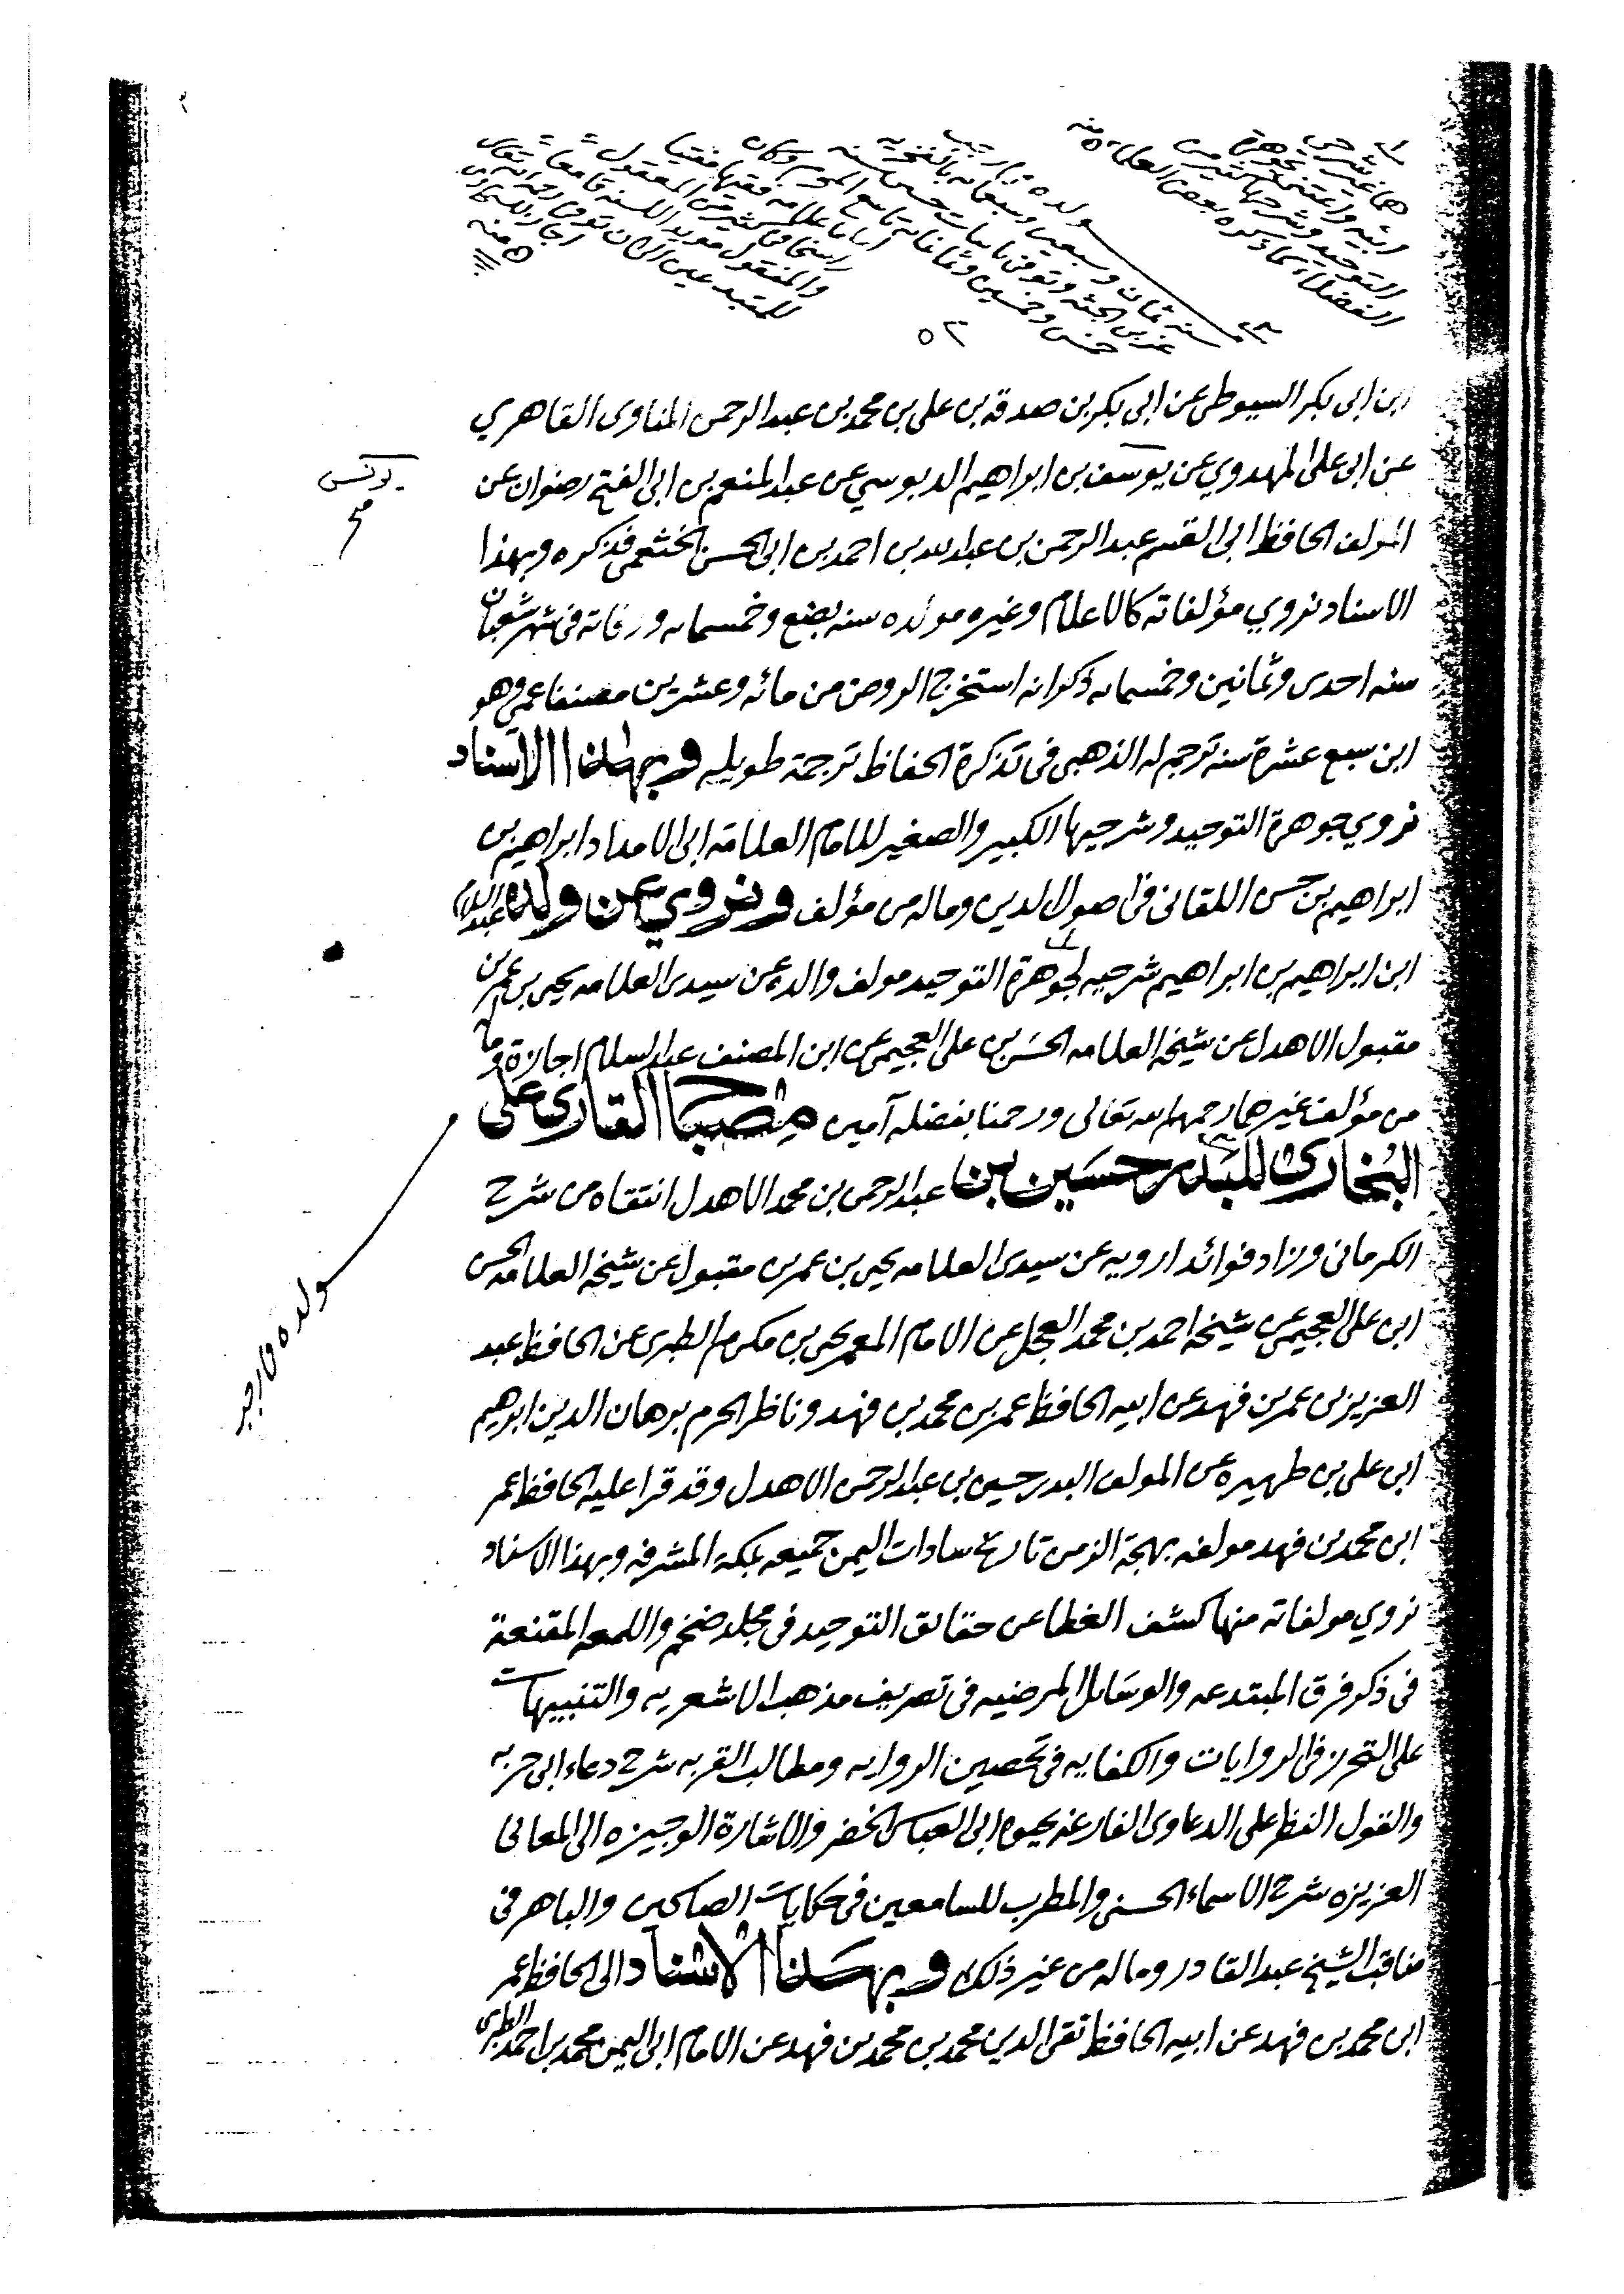 هما غير شرحي
التوحيد وشرحها كثير من
الفضلاء كما ذكره بعض العلما ه منه
مولده في رجب
سنه ثمان وسبعين وسبعمايه بالقحريه
وتوفي بابيات حسين سنه
خمس وخمسين وثمانمايه تاسع المحرم وكان
اماما علامه فقيها مفتيا
راسخا في كثير من المعقول
والمنقول مويدا للسنه قامعا
للمبتدعين الى ان توفي رحمه الله تعالى
ه منه
ابن ابى بكر السيوطى عن ابى بكر بن صدقه بن على بن محمد بن عبد الرحمن المناوى القاهري
عن ابى على المهدوي عن يوسف بن ابراهيم الدبوسي عن عبد المنعم بن ابى الفتح رضوان عن
يونس
صح
المولف الحافظ ابى القسم عبد الرحمن بن عبد الله بن احمد بن ابى الحسن الخثعمى فذكره وبهذا
الاسناد نروي مؤلفاته كالاعلام وغيره مولده سنه بضع وخمسمايه ووفاته فى شهر شعبان
سنه احدى وثمانين وخمسمايه ذكر انه استخرج الروض من مائه وعشرين مصنفا عمي وهو
ابن سبع عشرة سنه ترجم له الذهبى فى تذكرة الحفاظ ترجمة طويله وبهذا الاسناد
نروي جوهرة التوحيد وشرحيها الكبير والصغير للامام العلامة ابى الامداد ابراهيم بن
ابراهيم بن حسن اللقانى فى اصول الدين وماله من مؤلف ونروي عن ولده عبد السلام
ابن ابراهيم بن ابراهيم شرحيه لجوهرة التوحيد مولف والده عن سيدى العلامه يحيى بن عمر بن
مقبول الاهدل عن شيخه العلامه الحسن بن على العجيمى عن ابن المصنف عبد السلام اجازة وما
من مؤلف غيرها رحمهم الله تعالى ورحمنا بفضله آمين مصباح القارى على
البخارى للبدر حسين بن عبد الرحمن بن محمد الاهدل انتقاه من شرح
مولده في رجب
الكرمانى وزاد فوائد ارويه عن سيدى العلامه يحيى بن عمر بن مقبول عن شيخه العلامه الحسن
ابن على العجيمى عن شيخه احمد بن محمد العجل عن الامام المعمر يحيى بن مكرم الطبرى عن الحافظ عبد
العزيز بن عمر بن فهد عن ابيه الحافظ عمر بن محمد بن فهد وناظر الحرم برهان الدين ابرهيم
ابن على بن ظهيره عن المولف البدر حسين بن عبد الرحمن الاهدل وقد قرا عليه الحافظ عمر
ابن محمد بن فهد مولفه بهجة الزمن تاريخ سادات اليمن جميعه بمكة المشرفه وبهذا الاسناد
نروي مولفاته منها كشف الغطا عن حقايق التوحيد فى مجلد ضخم واللمعه المقنعة
فى ذكر فرق المبتدعه والوسايل المرضيه فى تعريف مذهب الاشعريه والتنبيهات
على التحرز فى الروايات والكفايه فى تحصين الروايه ومطالب القربه شرح دعاء ابى حربه
والقول النظر على الدعاوى الفارغه بحيوة ابى العباس الخضر والاشارة الوجيزه الى المعانى
العزيزه شرح الاسماء الحسنى والمطرب للسامعين فى حكايات الصالحين والباهر فى
مناقب الشيخ عبد القادر وماله من غير ذلك وبهذا الاسناد الى الحافظ عمر
ابن محمد بن فهد عن ابيه الحافظ تقى الدين محمد بن محمد بن فهد عن الامام ابى اليمن محمد بن احمد الطبرى